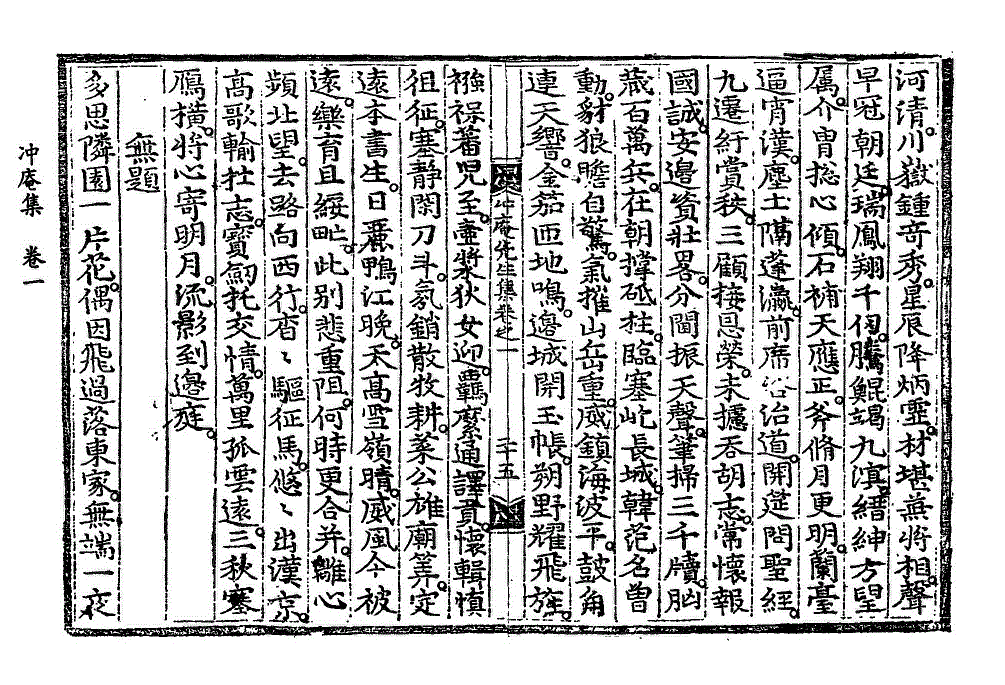 河清川嶽鍾奇秀星辰降炳靈材堪兼將相聲
早冠朝廷瑞鳳翔千仞騰鯤竭九溟縉紳方望
属介胄揔心傾石補天應正斧脩月更明蘭臺
逼宵漢塵土隔蓬瀛前席咨治道開筵問聖經
九遷紆賞秩三顧接恩榮未攄呑胡志常懷報
國誠安邊資壯畧分閫振天聲筆掃三千牘胸
藏百萬兵在朝撑砥柱臨塞屹長城韓范名曽
動豺狼膽自驚氣摧山岳重威鎭海波平鼓角
連天響金笳匝地鳴邊城開玉帳朔野耀飛旌
冲庵先生集卷之一
二十五
襁褓蕃兒至壷漿狄女迎羈縻通譯貢懷輯愼
徂征塞靜閑刀斗氛銷散牧耕萊公雄廟筭定
遠本書生日裹鴨江晚天髙雪嶺晴威風今被
遠樂育且綏甿此别悲重阻何時更合并離心
頻北望去路向西行杳〻驅征馬悠〻出漢京
高歌輸壮志寳劒托交情萬里孤雲遠三秋塞
鴈横將心寄明月流影到邊庭
無題
多思隣園一片花偶因飛過落東家無端一夜
冲庵集 卷一